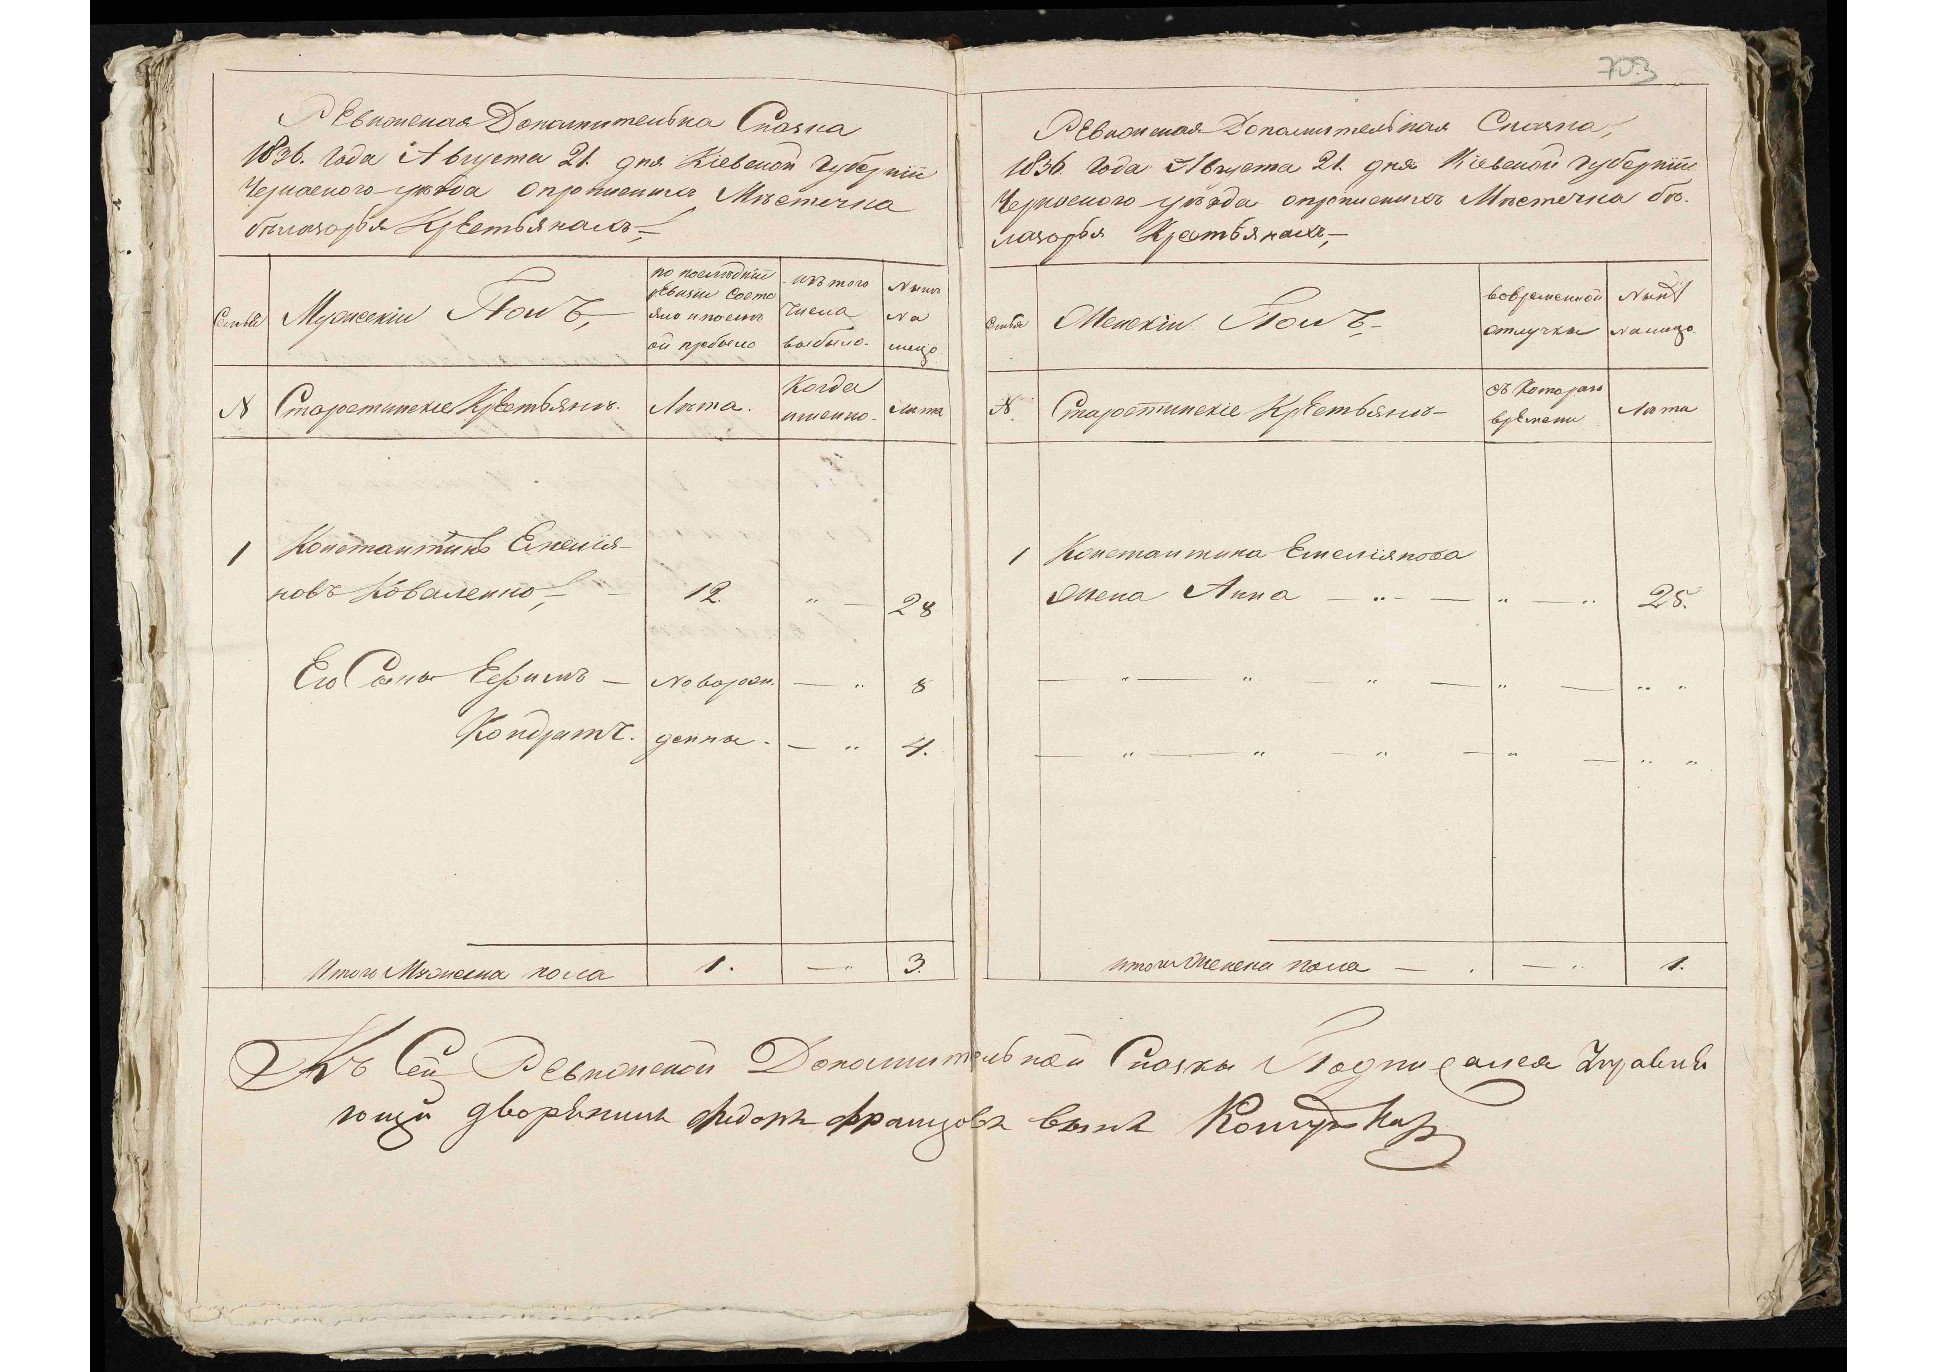 703
Ревижская Дополнительна Сказка
1836. Года Августа 21. дня Кіевской Губерніи
Черкаского уѣзда о прописныхъ Мѣстечка
бѣлазорья Крѣстьянахъ,—
Семьи
Мужескій Полъ,—
по послѣдній
ревизіи состо
яло и послѣ
ой прбыло
изъ того
числа
выбыло.
Нынѣ
На
лицо
N
Старостинскіе Крѣстьянъ.
Лѣта.
Когда
именно.
Лѣта
1
Константинъ Емелія-
новъ Коваленко,— 12. „ — 28
Его Сыны Ефимъ — Новорож. — „ 8
Кондратъ. денны. — „ 4.
Итого Мужеска пола 1. — „ 3.
Ревижская Дополнительная Сказка,
1836. Года Августа 21. дня Кіевской Губерніи
Черкаского уѣзда о прописныхъ Мѣстечка бѣ.
лазорья Крестьянахъ,—
Семья
Женскіи Полъ—
во временной
отлучки
Нынѣ
На лицо
N.
Старостинскіе Крѣстьянъ—
съ Котораго
врѣмени
Лѣта
1 Константина Емеліянова
Жена Анна — „ — „ — „ 25.
— „ — „ — „ — „ — „ „
— „ — „ — „ — „ — „ „
итого Женска пола — . — „ 1.
Къ Сей Ревижской Дополнительной Сказки Подписался Управля
ющій дворѣнинъ Федоръ Францовъ сынъ